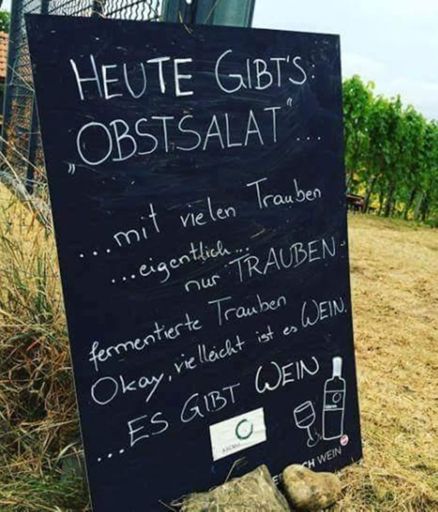 HEUTE GIBT'S:
„OBSTSALAT"...
...mit vielen Trauben
...eigentlich...
nur TRAUBEN
fermentierte Trauben
Okay, vielleicht ist es WEIN.
...ES GIBT WEIN
CH WEIN